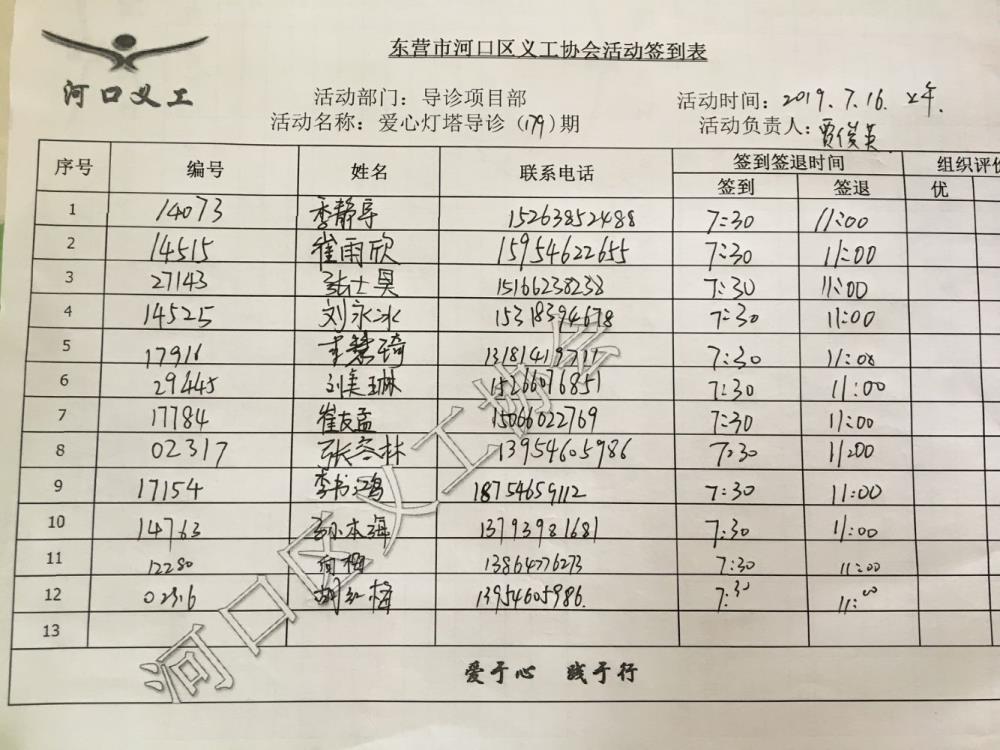 东营市河口区义工协会活动签到表
河口义工
活动部门：导诊项目部
活动时间：2019.7.16. 上午.
活动名称：爱心灯塔导诊（179）期
活动负责人：贾俊英
序号 编号 姓名 联系电话 签到签退时间 组织评价
签到 签退 优
1 14073 季静导 15263852488 7:30 11:00
2 14515 崔雨欣 15954622655 7:30 11:00
3 27143 张士昊 15166238238 7:30 11:00
4 14525 刘永冰 15318394678 7:30 11:00
5 17916 王慧琦 13181419711 7:30 11:00
6 29445 刘美琳 15266076851 7:30 11:00
7 17784 崔友孟 15066022769 7:30 11:00
8 02317 张容林 13954605986 7:30 11:00
9 17154 李书鸿 18754659112 7:30 11:00
10 14763 孙本海 13793981681 7:30 11:00
11 12280 向梅 13864776273 7:30 11:00
12 02316 胡红梅 13954605986. 7:30 11:00
13
爱于心 践于行
河口区义工协会